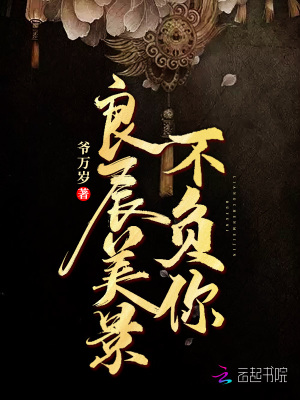 良辰美景
不负你
爷万岁 著
LIANGCHENMEIJING
BUFUNI
云起书院